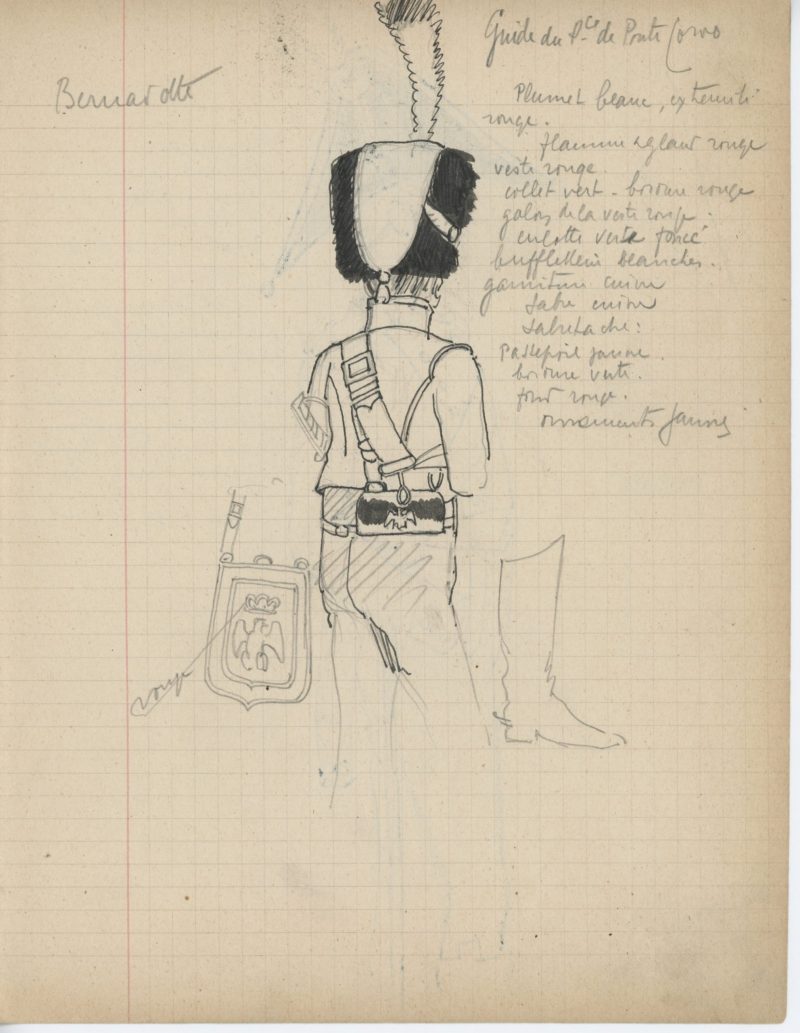 Guide du Pce de Ponte Corvo
Bernadotte
Plumet blanc, extremité
rouge.
flamme & gland rouge
veste rouge
collet vert - bordure rouge
galons de la veste rouge.
culotte verte foncé
buffleterie blanches.
garniture cuivre
sabre cuivre
sabretache:
Passepoil jaune.
bordure verte.
fond rouge.
ornements jaunes
rouge